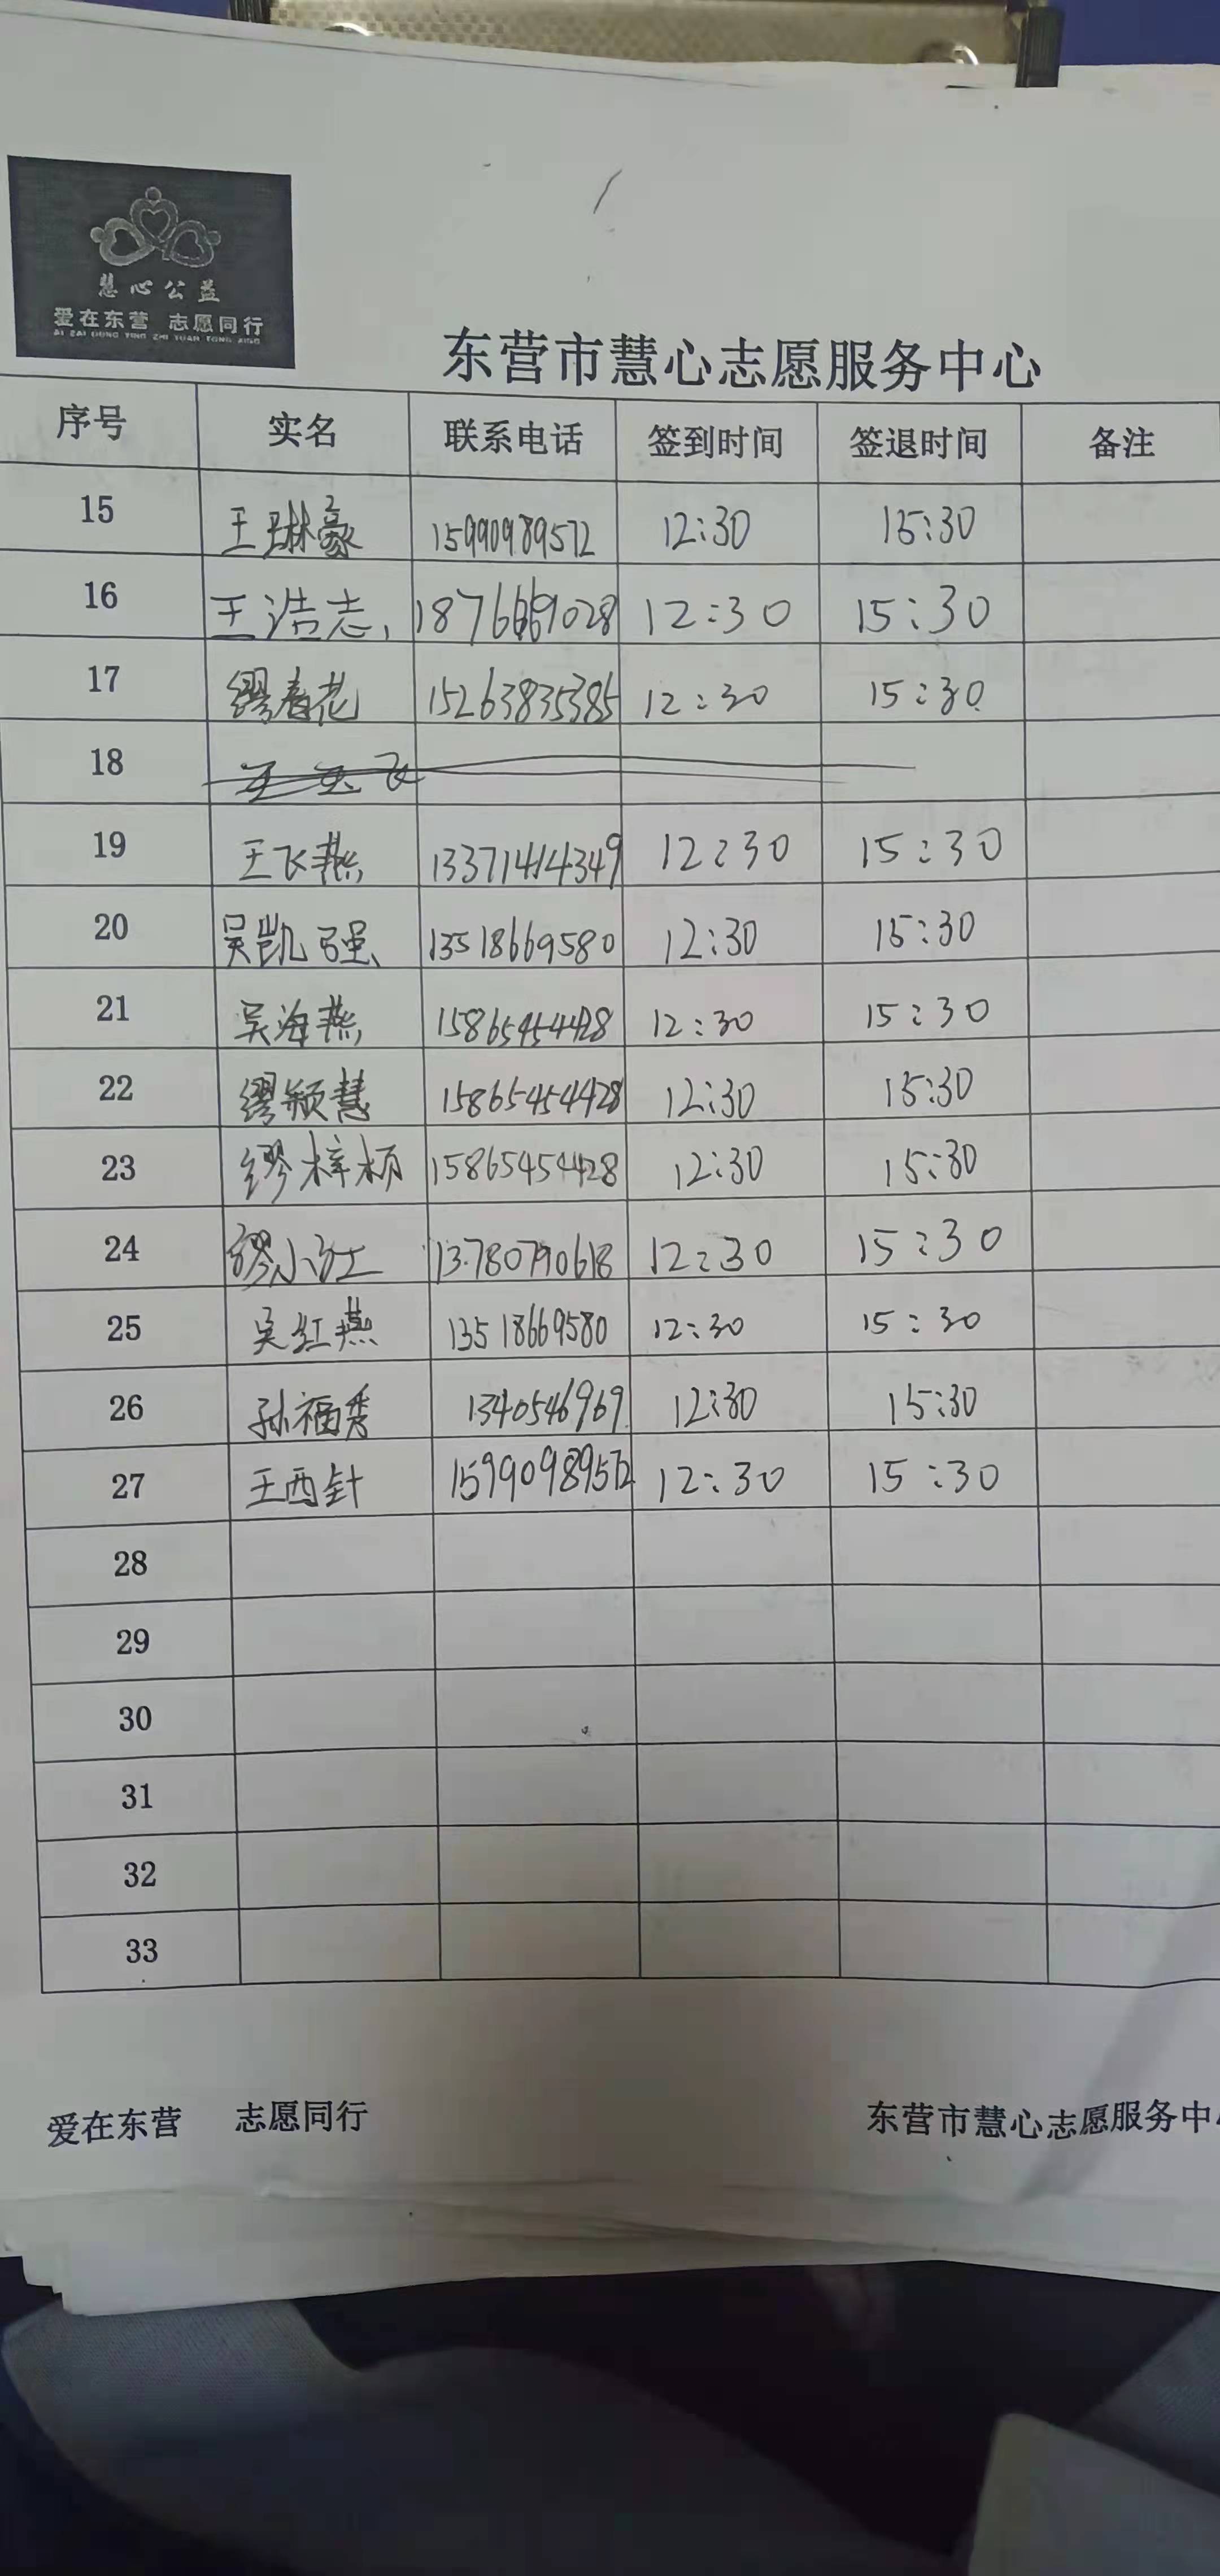 慧心公益
爱在东营 志愿同行
AI ZAI DONG YING ZHI YUAN TONG XING
东营市慧心志愿服务中心
序号 实名 联系电话 签到时间 签退时间 备注
15 王琳豪 15990989572 12:30 15:30
16 王浩志 12:30 15:30
17 缪春花 15263835385 12:30 15:30
18
19 王飞燕 13371414349 12:30 15:30
20 吴凯强 13518669580 12:30 15:30
21 吴海燕 15865454428 12:30 15:30
22 缪颖慧 15865454428 12:30 15:30
23 缪梓 15865454428 12:30 15:30
24 缪小红 13780790618 12:30 15:30
25 吴红燕 13518669580 12:30 15:30
26 孙福秀 1340546969 12:30 15:30
27 王西针 15990989572 12:30 15:30
28
29
30
31
32
33
爱在东营 志愿同行 东营市慧心志愿服务中